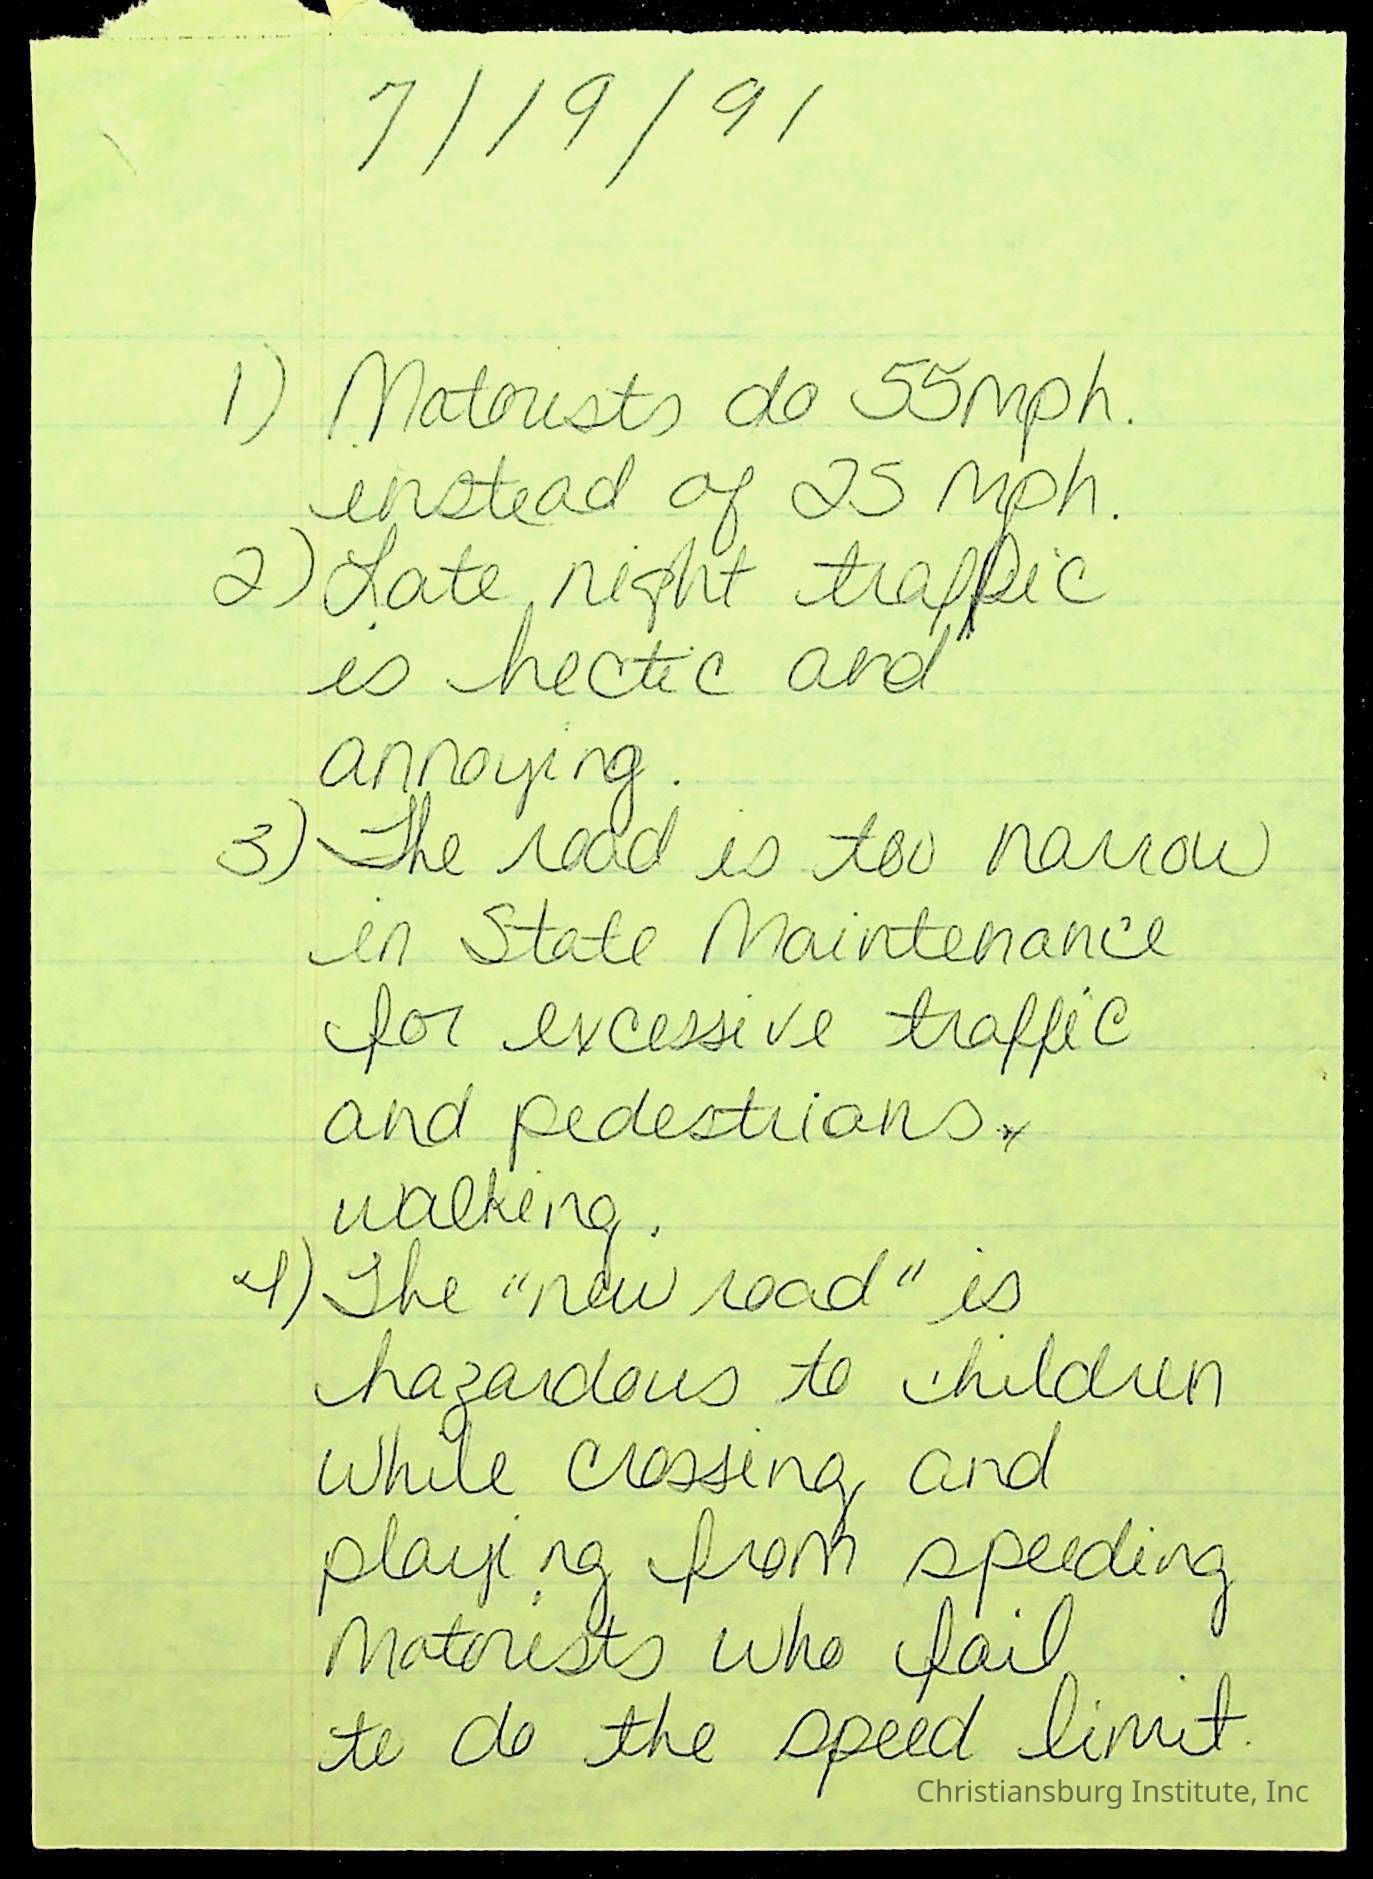 7/19/91
1) Motorists do 55mph.
instead of 25 mph.
2) Late night traffic
is hectic and
annoying.
3) The road is too narrow
in State Maintenance
for excessive traffic
and pedestrians
walking.
4) The "new road" is
hazardous to children
while crossing and
playing from speeding
motorists who fail
to do the speed limit.
Christiansburg Institute, Inc